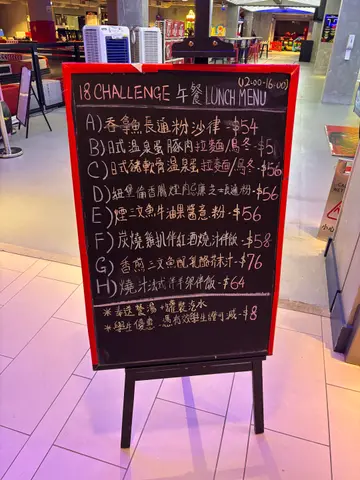 18 CHALLENGE 午餐 LUNCH MENU
(12:00-16:00)
A) 吞拿魚長通粉沙律-$54
B) 日式温泉蛋豚肉拉麵/烏冬-$51
C) 日式豬軟骨温泉蛋拉麵/烏冬-$56
D) 紐堡倫香腸煙肉忌廉芝士長通粉-$56
E) 煙三文魚牛油果醬意粉-$56
F) 炭燒雞扒伴紅酒燒汁伴飯-$58
G) 香煎三文魚配乳酪芥末汁-$76
H) 燒汁法式伴飯-$64
*奉送餐湯+罐裝汽水
*學生優惠:憑有效學生證可減-$8
小心